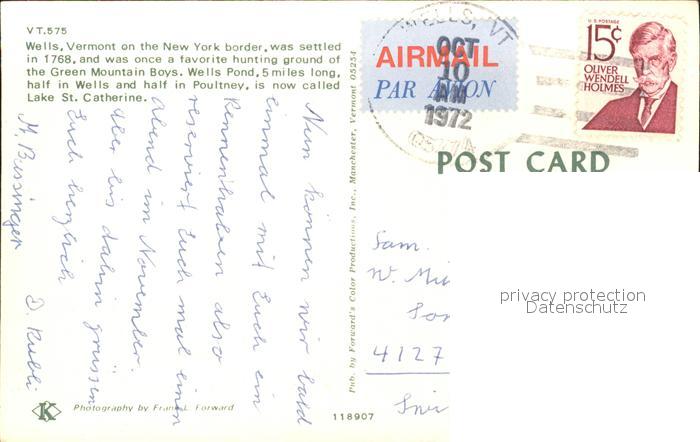 VT.575
Wells, Vermont on the New York border, was settled
in 1768, and was once a favorite hunting ground of
the Green Mountain Boys. Wells Pond, 5 miles long,
half in Wells and half in Poultney, is now called
Lake St. Catherine.
Nun können wir bald
einmal mit Euch ein
Rennenhaben also
reserviert Euch mal einen
Abend im November.
Aber bis dahin grüssen
Euch herzlich
M. Bussinger D. Kubli
K
Photography by Frank L. Forward
118907
Pub. by Forward's Color Productions, Inc., Manchester, Vermont 05254
AIRMAIL
PAR AVION
WELLS, VT
OCT
10
AM
1972
U.S. POSTAGE
15¢
OLIVER
WENDELL
HOLMES
POST CARD
Fam.
4127
privacy protection
Datenschutz